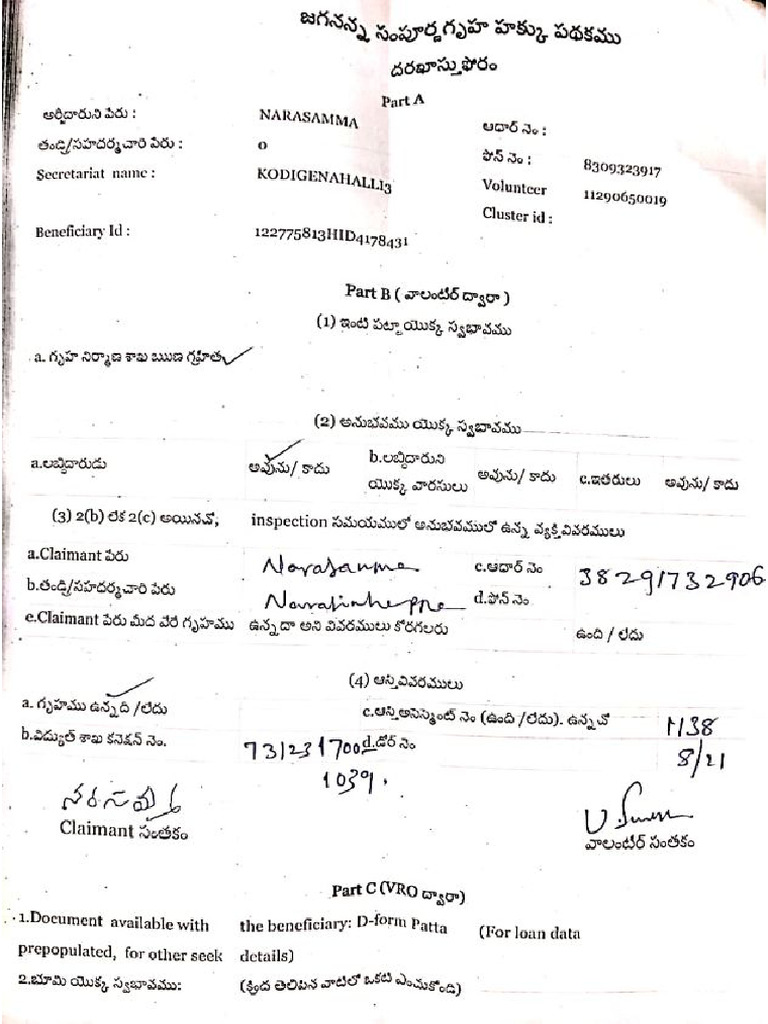 జగనన్న సంపూర్ణగృహ హక్కు పథకము
దరఖాస్తుఫోరం
Part A
అర్జీదారుని పేరు : NARASAMMA ఆధార్ నెం :
తండ్రి/సహదర్మచారి పేరు : 0 ఫోన్ నెం : 8309323917
Secretariat name : KODIGENAHALLI3 Volunteer 11290650019
Cluster id :
Beneficiary Id : 122775813HID4178431
Part B ( వాలంటీర్ ద్వారా )
(1) ఇంటి పట్టా యొక్క స్వభావము
a. గృహ నిర్మాణ శాఖ ఋణ గ్రహీత ✓
(2) అనుభవము యొక్క స్వభావము
a.లబ్ధిదారుడు అవును/ కాదు b.లబ్ధిదారుని యొక్క వారసులు అవును/ కాదు c.ఇతరులు అవును/ కాదు
(3) 2(b) లేక 2(c) అయినచో, inspection సమయములో అనుభవములో ఉన్న వ్యక్తి వివరములు
a.Claimant పేరు Narasamma c.ఆధార్ నెం 38291732906
b.తండ్రి/సహదర్మచారి పేరు d.ఫోన్ నెం
e.Claimant పేరు మీద వేరే గృహము ఉన్నదా అని వివరములు కోరగలరు ఉంది / లేదు
(4) ఆస్తి వివరములు
a. గృహము ఉన్నది /లేదు c.ఆస్తి అసెస్మెంట్ నెం (ఉంది /లేదు). ఉన్నచో 1138
b.విద్యుల్ శాఖ కనెక్షన్ నెం. 731231700 d.డోర్ నెం 8/21
1039.
నరసమ్మ
Claimant సంతకం వాలంటీర్ సంతకం
Part C (VRO ద్వారా)
1.Document available with the beneficiary: D-form Patta (For loan data
prepopulated, for other seek details)
2.భూమి యొక్క స్వభావము: (క్రింద తెలిపిన వాటిలో ఒకటి ఎంచుకోండి)